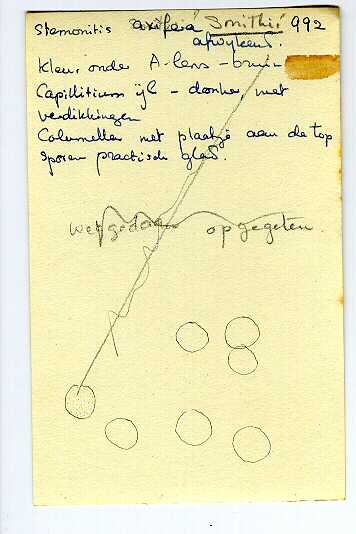 Stemonitis axifera Smithii 992
afwijkend.
Kleur onder A-lens - bruin
Capillitium ijl - donker, met
verdikkingen
Columella met plaatje aan de top
Sporen practisch glad.
weggedaan opgegeten.